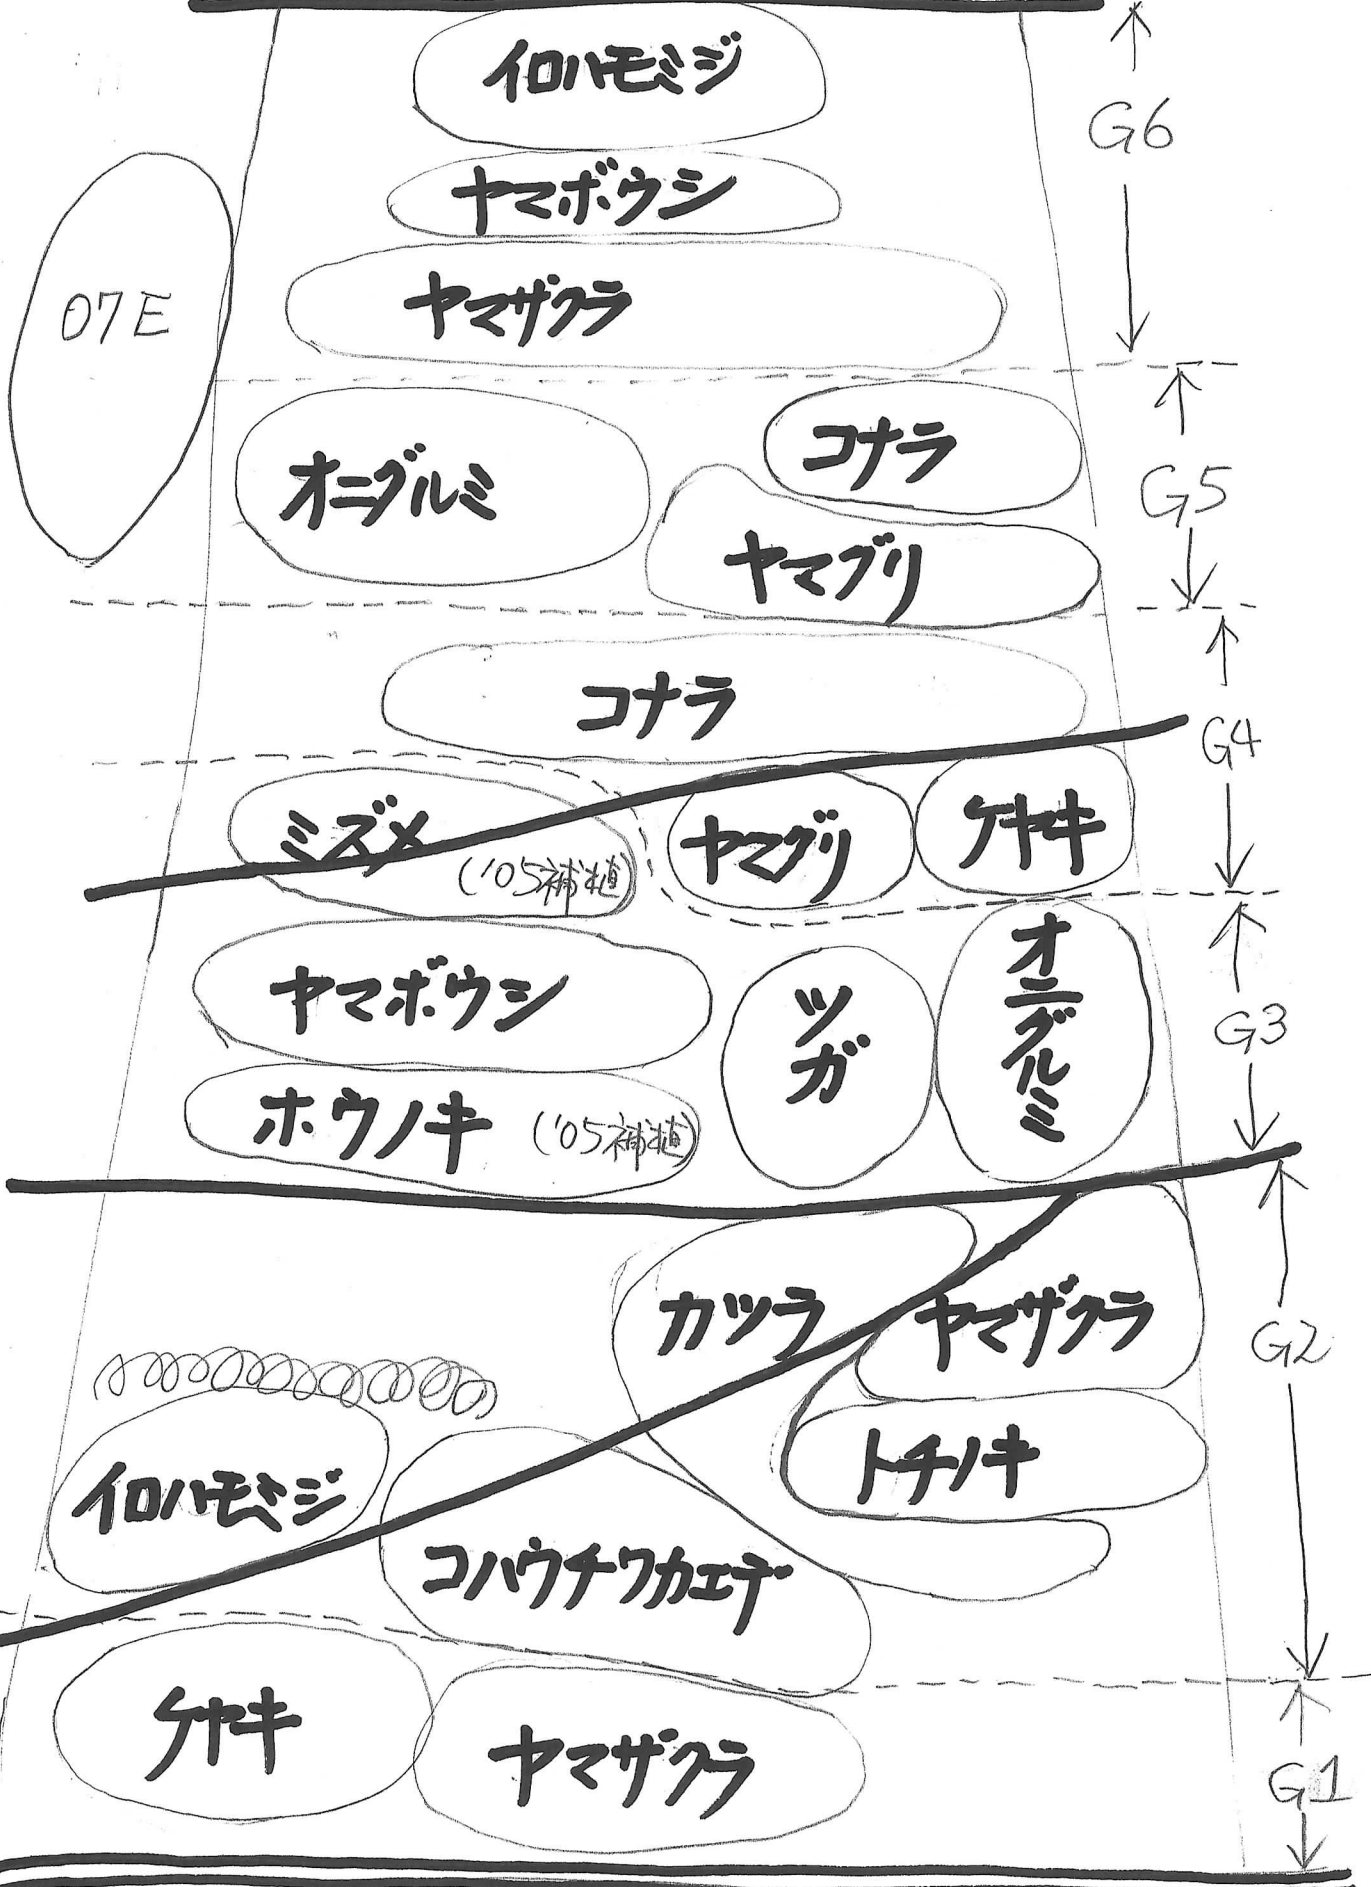 イロハモミジ
G6
ヤマボウシ
07E
ヤマザクラ
コナラ
オニグルミ
G5
ヤマグリ
コナラ
G4
ミズメ
('05補植)
ヤマグリ
ケヤキ
オニグルミ
ヤマボウシ
ツガ
G3
ホウノキ ('05補植)
カツラ
ヤマザクラ
G2
トチノキ
イロハモミジ
コハウチワカエデ
ケヤキ
ヤマザクラ
G1